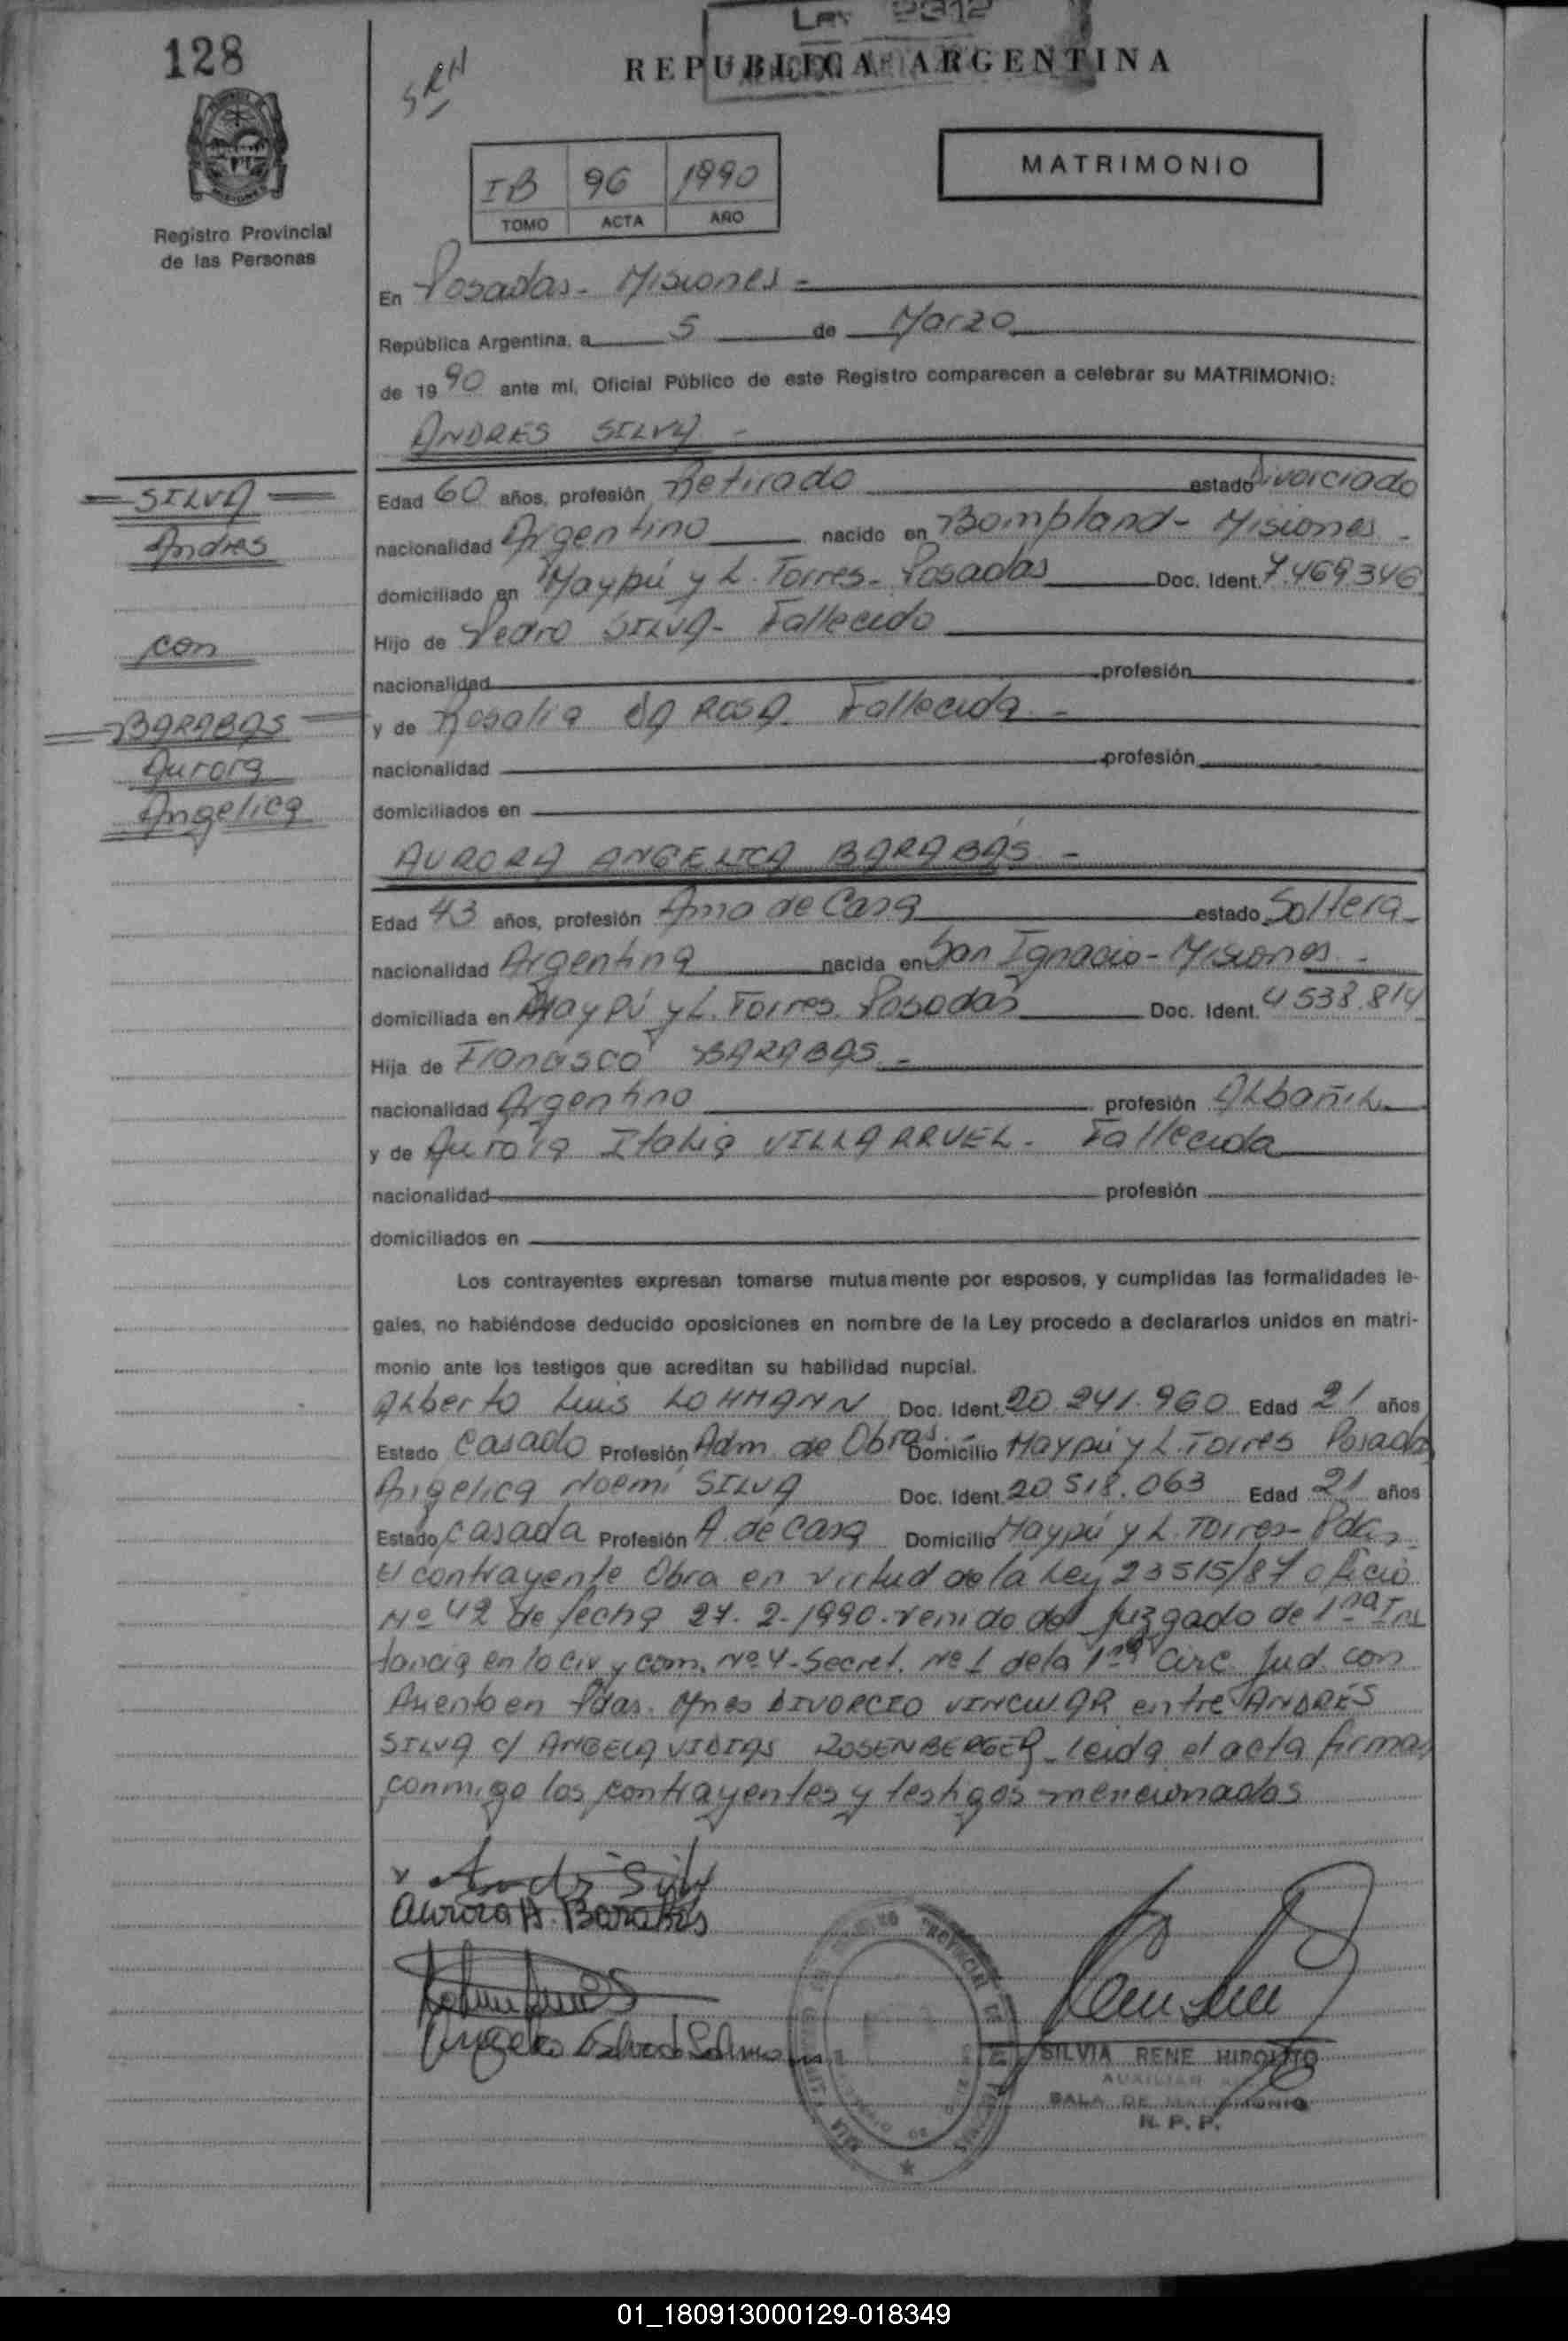 128
Ley 2312
SRH
REPUBLICA ARGENTINA
IB 96 1990
TOMO ACTA AÑO
MATRIMONIO
Registro Provincial
de las Personas
En Posadas - Misiones -
República Argentina, a 5 de Marzo
de 1990 ante mí, Oficial Público de este Registro comparecen a celebrar su MATRIMONIO:
ANDRES SILVA -
SILVA
Andres
con
BARABAS
Aurora
Angelica
Edad 60 años, profesión Retirado estado Divorciado
nacionalidad Argentino nacido en Bompland - Misiones -
domiciliado en Maypú y L. Torres - Posadas Doc. Ident. 7.469.346
Hijo de Pedro SILVA - Fallecido
nacionalidad profesión
y de Rosalia DA ROSA. Fallecida -
nacionalidad profesión
domiciliados en
AURORA ANGELICA BARABÁS -
Edad 43 años, profesión Ama de Casa estado Soltera
nacionalidad Argentina nacida en San Ignacio - Misiones -
domiciliada en Maypú y L. Torres. Posadas Doc. Ident. 4.538.814
Hija de Francisco BARABAS -
nacionalidad Argentino profesión Albañil
y de Aurora Italia VILLARRUEL - Fallecida
nacionalidad profesión
domiciliados en
Los contrayentes expresan tomarse mutuamente por esposos, y cumplidas las formalidades le-
gales, no habiéndose deducido oposiciones en nombre de la Ley procedo a declararlos unidos en matri-
monio ante los testigos que acreditan su habilidad nupcial.
Alberto Luis LOHMANN Doc. Ident. 20.241.960 Edad 21 años
Estado Casado Profesión Adm. de Obras. Domicilio Maypú y L. Torres Posadas
Angelica Noemí SILVA Doc. Ident. 20.518.063 Edad 21 años
Estado Casada Profesión A. de Casa Domicilio Maypú y L. Torres - Pdas.
El contrayente Obra en virtud de la Ley 23515/87 oficio
Nº 42 de fecha 27-2-1990. venido del Juzgado de 1ra Ins
tancia en lo Civ. y Com. Nº 4 - Secret. Nº 1 de la 1ra Circ. Jud. con
Asiento en Pdas. Mnes DIVORCIO VINCULAR entre ANDRES
SILVA c/ ANGELA VIDIAS ROSENBERGER - leida el acta firman
conmigo los contrayentes y testigos mencionados
x Andrés Silva
Aurora A. Barabás
SILVIA RENE HIPOLITO
AUXILIAR
SALA DE MATRIMONIO
R. P. P.
01_180913000129-018349